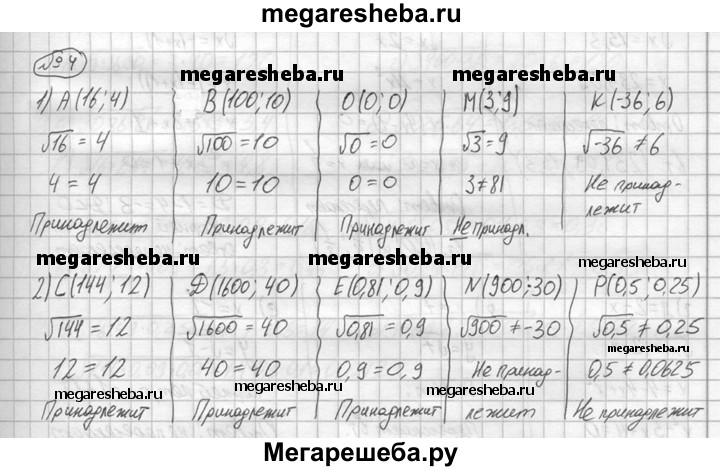 megaresheba.ru
№ 4
megaresheba.ru megaresheba.ru
1) A(16; 4) B(100; 10) O(0; 0) M(3; 9) K(-36; 6)
√16 = 4 √100 = 10 √0 = 0 √3 = 9 √-36 ≠ 6
4 = 4 10 = 10 0 = 0 3 ≠ 81 Не принад-
лежит
Принадлежит Принадлежит Принадлежит Не принадл.
megaresheba.ru megaresheba.ru megaresheba.ru
2) C(144; 12) Д(1600; 40) E(0,81; 0,9) N(900; -30) P(0,5; 0,25)
√144 = 12 √1600 = 40 √0,81 = 0,9 √900 ≠ -30 √0,5 ≠ 0,25
megaresheba.ru
12 = 12 40 = 40 0,9 = 0,9 Не принад- 0,5 ≠ 0,0625
megaresheba.ru megaresheba.ru megaresheba.ru megaresheba.ru
Принадлежит Принадлежит Принадлежит лежит Не принадлежит
Мегарешеба.ру